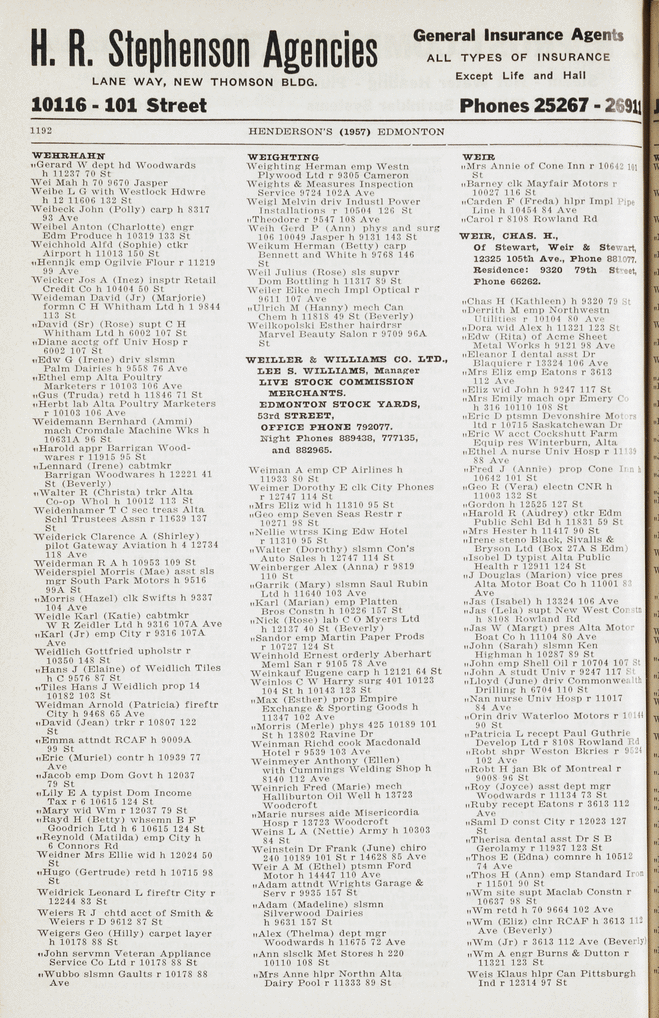 H. R. Stephenson Agencies
LANE WAY, NEW THOMSON BLDG.
10116 - 101 Street
General Insurance Agents
ALL TYPES OF INSURANCE
Except Life and Hall
Phones 25267 - 26911
1192
HENDERSON'S (1957) EDMONTON
WEHRHAHN
„Gerard W dept hd Woodwards
h 11237 70 St
Wei Mah h 70 9670 Jasper
Weibe L G with Westlock Hdwre
h 12 11606 132 St
Weibeck John (Polly) carp h 8317
93 Ave
Weibel Anton (Charlotte) engr
Edm Produce h 10319 133 St
Weichhold Alfd (Sophie) ctkr
Airport h 11013 150 St
„Hennjk emp Ogilvie Flour r 11219
99 Ave
Weicker Jos A (Inez) insptr Retail
Credit Co h 10404 50 St
Weideman David (Jr) (Marjorie)
formn C H Whitham Ltd h 1 9844
113 St
„David (Sr) (Rose) supt C H
Whitham Ltd h 6002 107 St
„Diane acctg off Univ Hosp r
6002 107 St
„Edw G (Irene) driv slsmn
Palm Dairies h 9558 76 Ave
„Ethel emp Alta Poultry
Marketers r 10103 106 Ave
„Gus (Truda) retd h 11846 71 St
„Herbt lab Alta Poultry Marketers
r 10103 106 Ave
Weidemann Bernhard (Ammi)
mach Cromdale Machine Wks h
10631A 96 St
„Harold appr Barrigan Wood-
wards r 11915 95 St
„Lennard (Irene) cabtmkr
Barrigan Woodwards h 12221 41
St (Beverly)
„Walter R (Christa) trkr Alta
Co-op Whol h 10012 113 St
Weidenhamer T C sec treas Alta
Schl Trustees Assn r 11639 137
St
Weiderick Clarence A (Shirley)
pilot Gateway Aviation h 4 12734
118 Ave
Weiderman R A h 10953 109 St
Weiderspiel Morris (Mae) asst sls
mgr South Park Motors h 9516
99A St
„Morris (Hazel) clk Swifts h 9337
104 Ave
Weidle Karl (Katie) cabtmkr
W R Zeidler Ltd h 9316 107A Ave
„Karl (Jr) emp City r 9316 107A
Ave
Weidlich Gottfried upholstr r
10350 148 St
„Hans J (Elaine) of Weidlich Tiles
h C 9576 87 St
„Tiles Hans J Weidlich prop 14
10182 103 St
Weidman Arnold (Patricia) fireftr
City h 9468 65 Ave
„David (Jean) trkr r 10807 122
St
„Emma attndt RCAF h 9009A
99 St
„Eric (Muriel) contr h 10939 77
Ave
„Jacob emp Dom Govt h 12037
79 St
„Lily E A typist Dom Income
Tax r 6 10615 124 St
„Mary wid Wm r 12037 79 St
„Rayd H (Betty) whsemn B F
Goodrich Ltd h 6 10615 124 St
„Reynold (Matilda) emp City h
6 Connors Rd
Weidner Mrs Ellie wid h 12024 50
St
„Hugo (Gertrude) retd h 10715 98
St
Weidrick Leonard L fireftr City r
12244 83 St
Weiers R J chtd acct of Smith &
Weiers r D 9612 87 St
Weigers Geo (Hilly) carpet layer
h 10178 88 St
„John servmn Veteran Appliance
Service Co Ltd r 10178 88 St
„Wubbo slsmn Gaults r 10178 88
Ave
WEIGHTING
Weighting Herman emp Westn
Plywood Ltd r 9305 Cameron
Weights & Measures Inspection
Service 9724 102A Ave
Weigl Melvin driv Industl Power
Installations r 10504 126 St
„Theodore r 9547 108 Ave
Weih Gerd P (Ann) phys and surg
106 10049 Jasper h 9131 143 St
Weikum Herman (Betty) carp
Bennett and White h 9768 146
St
Weil Julius (Rose) sls supvr
Dom Bottling h 11317 89 St
Weiler Elke mech Impl Optical r
9611 107 Ave
„Ulrich M (Hanny) mech Can
Chem h 11818 49 St (Beverly)
Weilkopolski Esther hairdrsr
Marvel Beauty Salon r 9709 96A
St
WEILLER & WILLIAMS CO. LTD.,
LEE S. WILLIAMS, Manager
LIVE STOCK COMMISSION
MERCHANTS.
EDMONTON STOCK YARDS,
53rd STREET,
OFFICE PHONE 792077.
Night Phones 889438, 777135,
and 882965.
Weiman A emp CP Airlines h
11933 80 St
Weimer Dorothy E clk City Phones
r 12747 114 St
„Mrs Eliz wid h 11310 95 St
„Geo emp Seven Seas Restr r
10271 98 St
„Nellie wtrss King Edw Hotel
r 11310 95 St
„Walter (Dorothy) slsmn Con's
Auto Sales h 12747 114 St
Weinberger Alex (Anna) r 9819
110 St
„Garrik (Mary) slsmn Saul Rubin
Ltd h 11640 103 Ave
„Karl (Marian) emp Platten
Bros Constn h 10226 157 St
„Nick (Rose) lab C O Myers Ltd
h 12137 40 St (Beverly)
„Sandor emp Martin Paper Prods
r 10727 124 St
Weinhold Ernest orderly Aberhart
Meml San r 9105 78 Ave
Weinkauf Eugene carp h 12121 64 St
Weinlos C W Harry surg 401 10123
104 St h 10143 123 St
„Max (Esther) prop Empire
Exchange & Sporting Goods h
11347 102 Ave
„Morris (Merle) phys 425 10189 101
St h 13802 Ravine Dr
Weinman Richd cook Macdonald
Hotel r 9539 103 Ave
Weinmeyer Anthony (Ellen)
with Cummings Welding Shop h
8140 112 Ave
Weinrich Fred (Marie) mech
Halliburton Oil Well h 13723
Woodcroft
„Marie nurses aide Misericordia
Hosp r 13723 Woodcroft
Weins L A (Nettie) Army h 10303
84 St
Weinstein Dr Frank (June) chiro
240 10189 101 St r 14628 85 Ave
Weir A M (Ethel) ptsmn Ford
Motor h 14447 110 Ave
„Adam attndt Wrights Garage &
Serv r 9935 157 St
„Adam (Madeline) slsmn
Silverwood Dairies
h 9631 157 St
„Alex (Thelma) dept mgr
Woodwards h 11675 72 Ave
„Ann slsclk Met Stores h 220
10110 108 St
„Mrs Anne hlpr Northn Alta
Dairy Pool r 11333 89 St
WEIR
„Mrs Annie of Cone Inn r 10642 101
St
„Barney clk Mayfair Motors r
10027 116 St
„Carden F (Freda) hlpr Impl Pipe
Line h 10454 84 Ave
„Carol r 8108 Rowland Rd
WEIR, CHAS. H.,
Of Stewart, Weir & Stewart,
12325 105th Ave., Phone 881077.
Residence: 9320 79th Street,
Phone 66262.
„Chas H (Kathleen) h 9320 79 St
„Derrith M emp Northwestn
Utilities r 10104 80 Ave
„Dora wid Alex h 11321 123 St
„Edw (Rita) of Acme Sheet
Metal Works h 9121 98 Ave
„Eleanor I dental asst Dr
Blaquiere r 13324 106 Ave
„Mrs Eliz emp Eatons r 3613
112 Ave
„Eliz wid John h 9247 117 St
„Mrs Emily mach opr Emery Co
h 316 10110 108 St
„Eric D ptsmn Devonshire Motors
ltd r 10715 Saskatchewan Dr
„Eric W acct Cockshutt Farm
Equip res Winterburn, Alta
„Ethel A nurse Univ Hosp r 11139
88 Ave
„Fred J (Annie) prop Cone Inn h
10642 101 St
„Geo R (Vera) electn CNR h
11003 132 St
„Gordon h 12525 127 St
„Harold R (Audrey) clkr Edm
Public Schl Bd h 11831 59 St
„Mrs Hester h 11417 90 St
„Irene steno Black, Sivalls &
Bryson Ltd (Box 27A S Edm)
„Isobel D typist Alta Public
Health r 12911 124 St
„J Douglas (Marion) vice pres
Alta Motor Boat Co h 11001 83
Ave
„Jas (Isabel) h 13324 106 Ave
„Jas (Lela) supt New West Constn
h 8108 Rowland Rd
„Jas W (Margt) pres Alta Motor
Boat Co h 11104 80 Ave
„John (Sarah) slsmn Ken
Highman h 10287 89 St
„John emp Shell Oil r 10704 107 St
„John A studt Univ r 9247 117 St
„Lloyd (June) driv Commonwealth
Drilling h 6704 110 St
„Nan nurse Univ Hosp r 11017
84 Ave
„Orin driv Waterloo Motors r 10144
90 St
„Patricia L recept Paul Guthrie
Develop Ltd r 8108 Rowland Rd
„Robt shpr Weston Bkries r 9524
102 Ave
„Robt H jan Bk of Montreal r
9008 96 St
„Roy (Joyce) asst dept mgr
Woodwards r 11134 73 St
„Ruby recept Eatons r 3613 112
Ave
„Saml D const City r 12023 127
St
„Therisa dental asst Dr S B
Gerolamy r 11937 123 St
„Thos E (Edna) comnre h 10512
74 Ave
„Thos H (Ann) emp Standard Iron
r 11501 90 St
„Wm site supt Maclab Constn r
10637 98 St
„Wm retd h 70 9664 102 Ave
„Wm (Eliz) clnr RCAF h 3613 112
Ave (Beverly)
„Wm (Jr) r 3613 112 Ave (Beverly)
„Wm A engr Burns & Dutton r
11321 123 St
Weis Klaus hlpr Can Pittsburgh
Ind r 12314 97 St